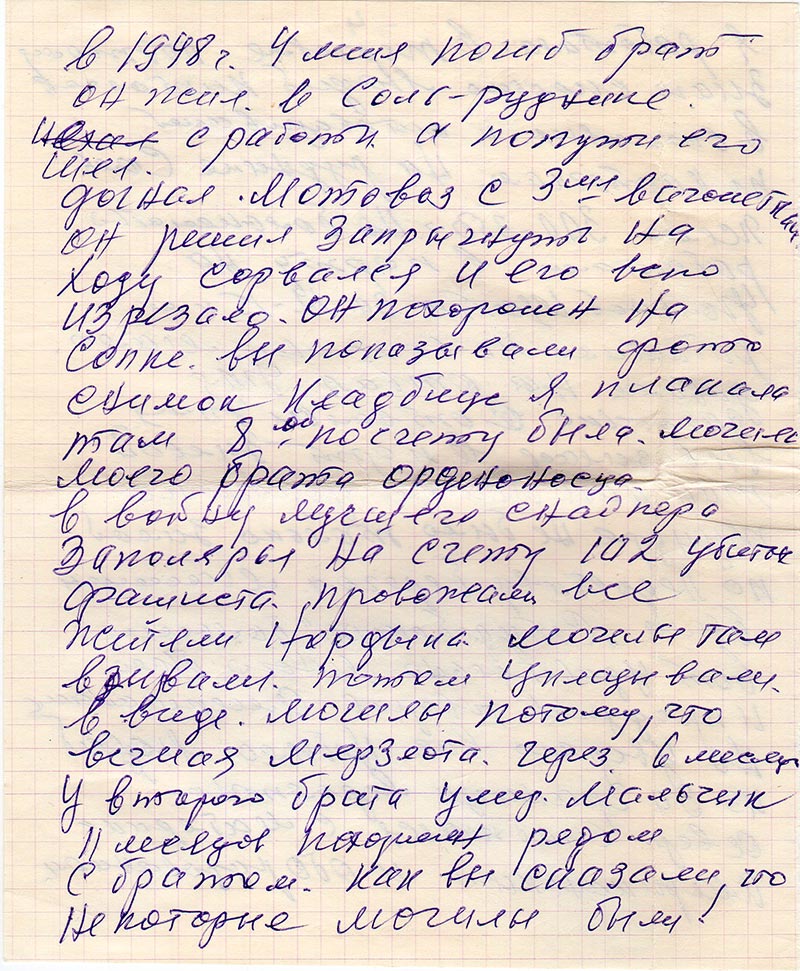 в 1948 г. 4 мая погиб брат
он жил. в Соль-руднике.
ехал с работы. а попути его
шел.
догнал. Мотовоз с 3мя вагонетками.
он решил Запрыгнуть На
ходу сорвался и его всио
изрезало. он похоронен На
сопке. вы показывали фото
снимок Кладбище Я плакала
там 8ой по счету была. могила
моего брата орденоносца.
в войну лучшего снайпера
Заполярья На счету 102 убитых
фашиста. провожали все
Жители Нордвика. могилы там
взрывали. потом укладывали.
в виде. могилы потому, что
вечная Мерзлота. через 6 месяц
У второго брата умер. Мальчик
11 месяцов похоронен рядом
С братом. как вы сказали, что
Некоторые могилы были!